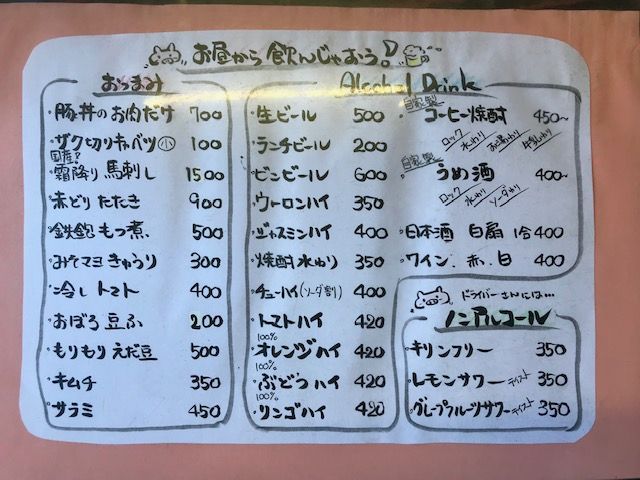 お昼から飲んじゃおう!
おつまみ
豚丼のお肉だけ 700
ザク切りキャベツ 小 100
国産?
霜降り 馬刺し 1500
赤どり たたき 900
鉄鍋 もつ煮 500
みそマヨ きゅうり 300
冷し トマト 400
おぼろ 豆ふ 200
もりもり えだ豆 500
キムチ 350
サラミ 450
Alcohol Drink
生ビール 500
ランチビール 200
ビンビール 600
ウーロンハイ 350
ジャスミンハイ 400
焼酎 水わり 350
チューハイ(ソーダ割) 400
トマトハイ 420
100%
オレンジハイ 420
100%
ぶどうハイ 420
100%
リンゴハイ 420
自家製
コーヒー焼酎 450~
ロック 水わり お湯わり 牛乳わり
自家製
うめ酒 400~
ロック 水わり ソーダわり
日本酒 白扇 1合 400
ワイン 赤.白 400
ドライバーさんには…
ノンアルコール
キリンフリー 350
レモンサワーテイスト 350
グレープフルーツサワーテイスト 350